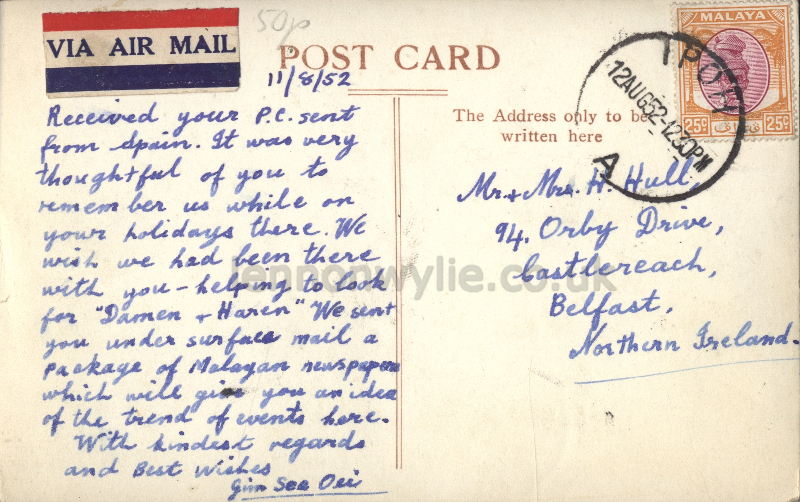 VIA AIR MAIL
50p
POST CARD
11/8/52
Received your P.C. sent
from Spain. It was very
thoughtful of you to
remember us while on
your holidays there. We
wish we had been there
with you - helping to look
for "Damen + Haren" We sent
you under surface mail a
package of Malayan newspapers
which will give you an idea
of the trend of events here.
With kindest regards
and Best Wishes
Gim See Oei
The Address only to be
written here
Mr. + Mrs. H. Hull,
94, Orby Drive,
Castlereach,
Belfast,
Northern Ireland.
MALAYA
25c 25c
IPOH
12AUG52-1230PM
A
lennonwylie.co.uk